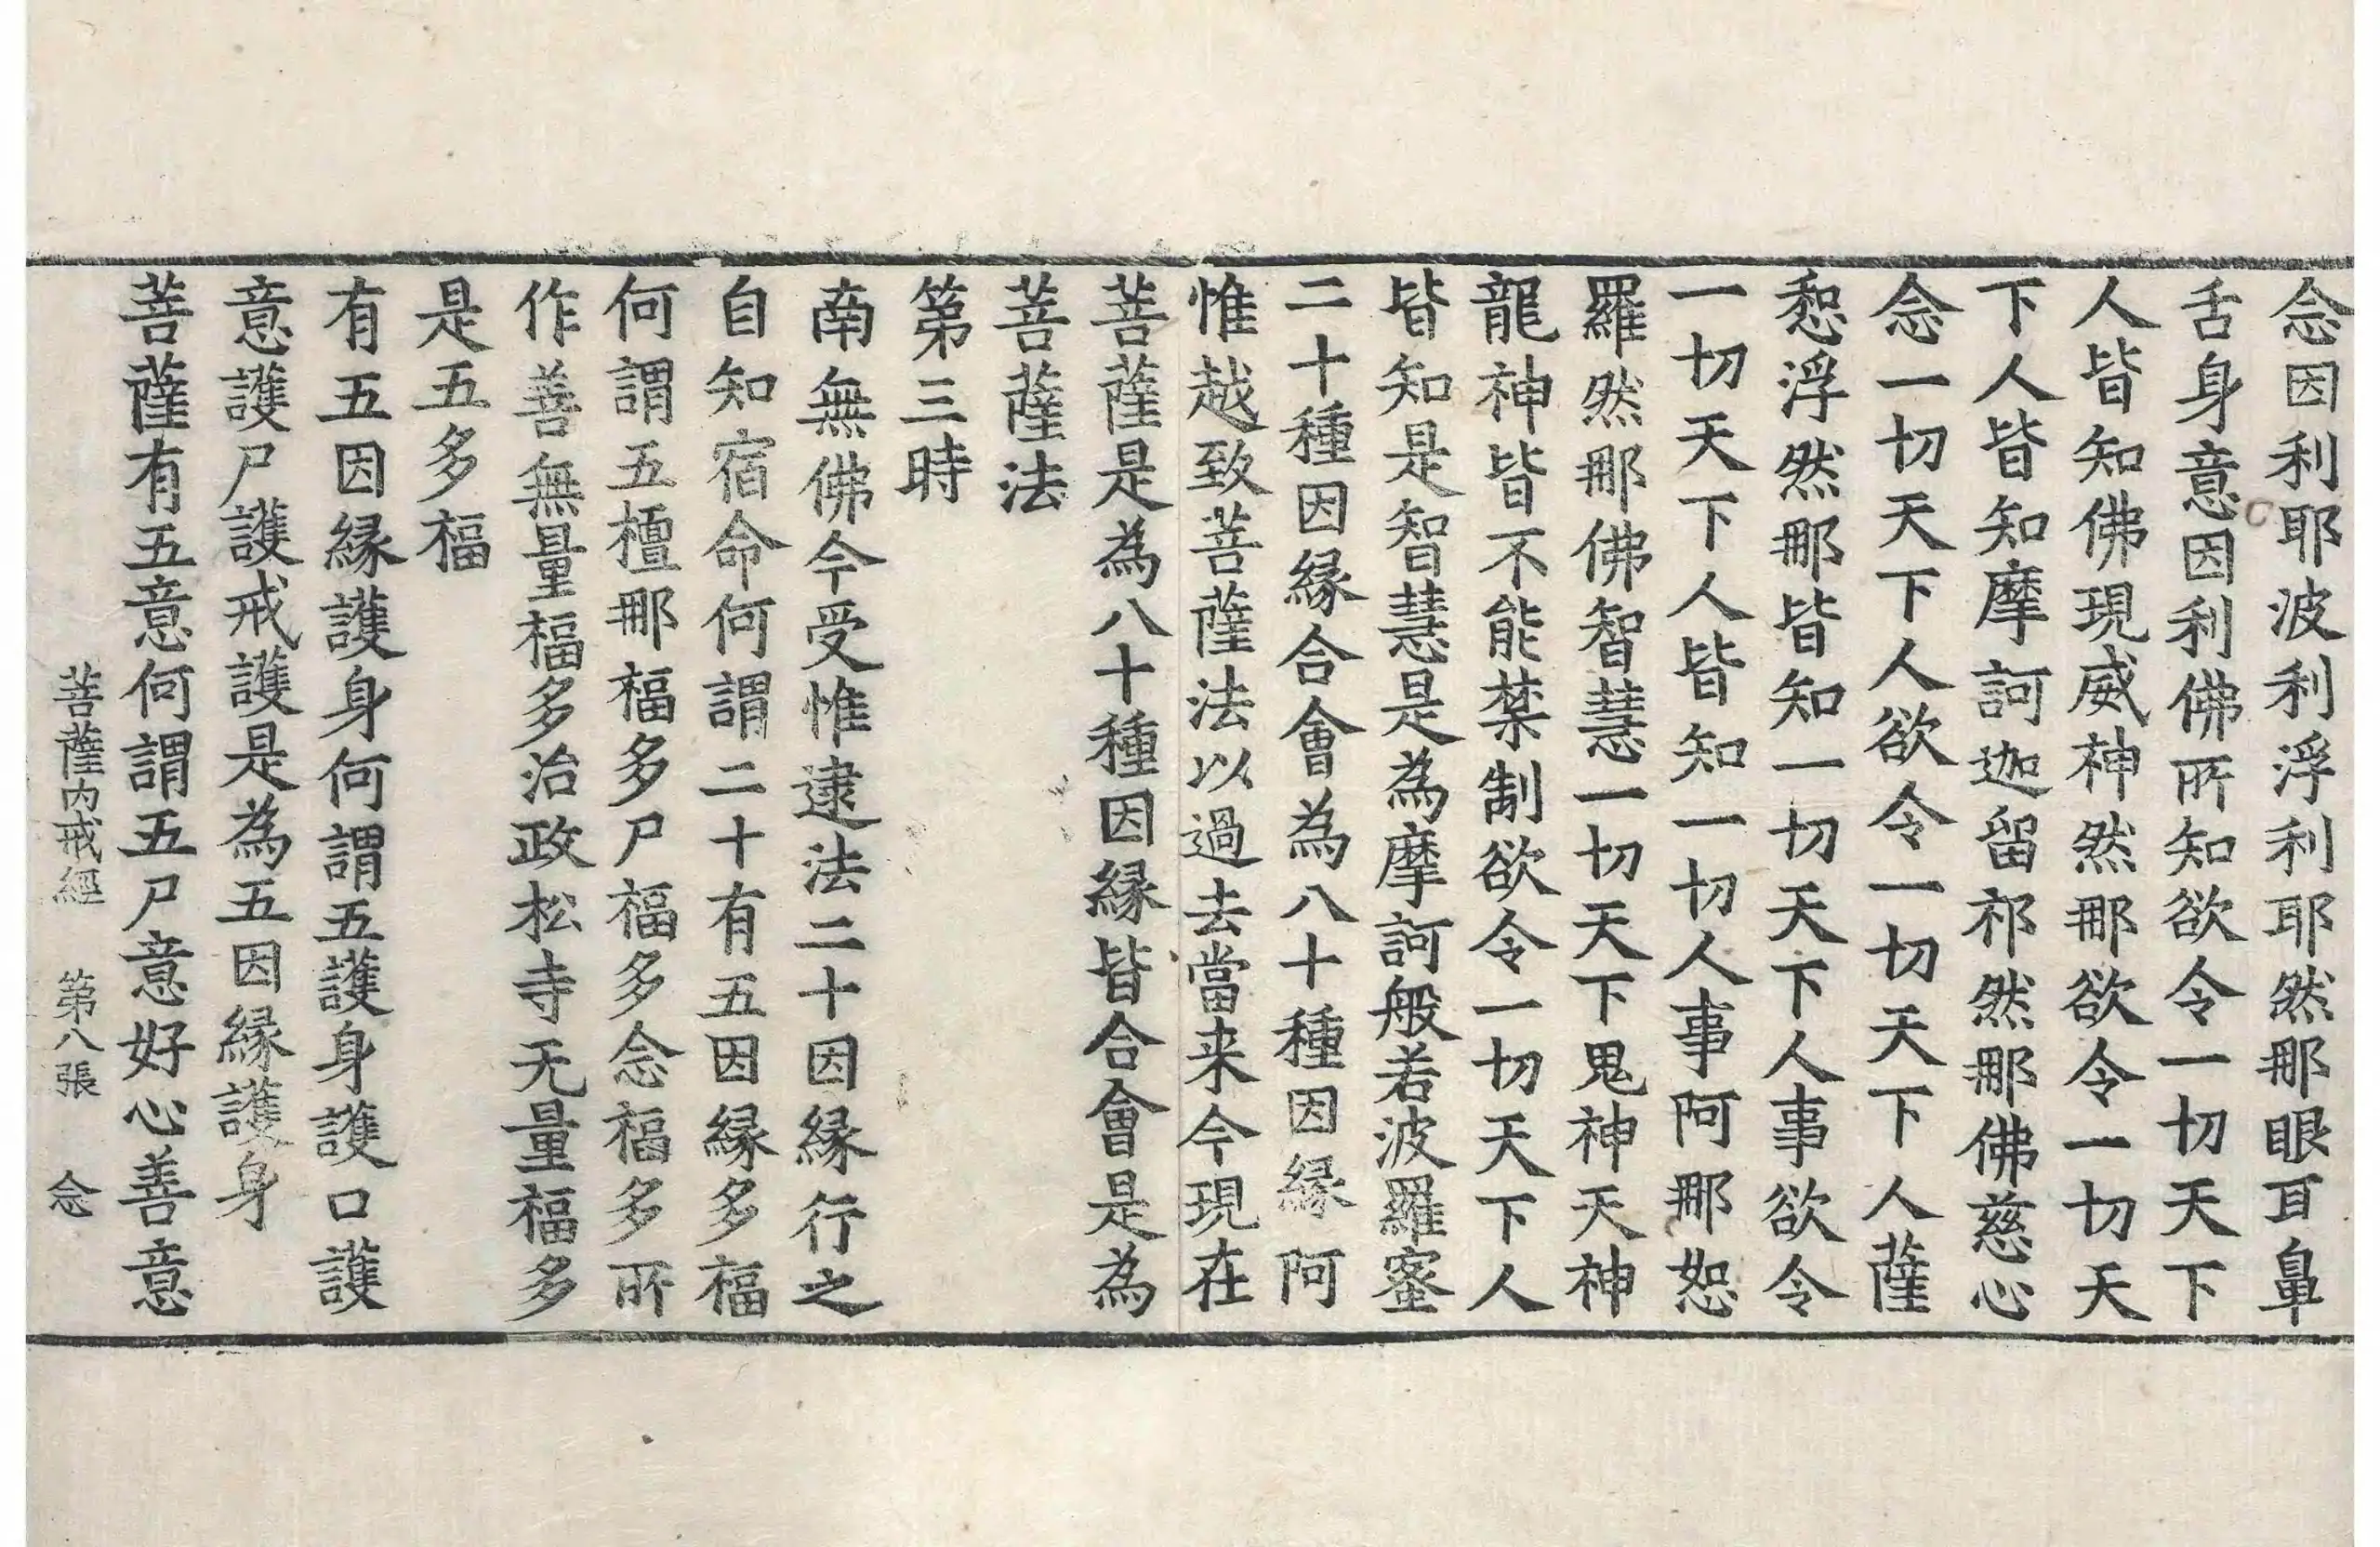 念因利耶波利浮利耶然那眼耳鼻
舌身意因利佛所知欲令一切天下
人皆知佛現威神然那欲令一切天
下人皆知摩訶迦留祁然那佛慈心
念一切天下人欲令一切天下人薩
惒浮然那皆知一切天下人事欲令
一切天下人皆知一切人事阿那恕
羅然那佛智慧一切天下鬼神天神
龍神皆不能禁制欲令一切天下人
皆知是智慧是為摩訶般若波羅蜜
二十種因緣合會為八十種因緣阿
惟越致菩薩法以過去當来今現在
菩薩是為八十種因緣皆合會是為
菩薩法
第三時
南無佛今受惟逮法二十因緣行之
自知宿命何謂二十有五因緣多福
何謂五檀那福多尸福多念福多所
作善無量福多治政松寺无量福多
是五多福
有五因緣護身何謂五護身護口護
意護尸護戒護是為五因緣護身
菩薩有五意何謂五尸意好心善意
菩薩內戒經 第八張 念